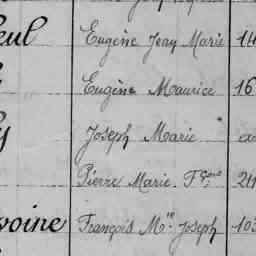 eul Eugène Jean Marie 14
Eugène Maurice 16
y Joseph Marie ex
Pierre Marie Fçois 211
voine François Mie Joseph 103